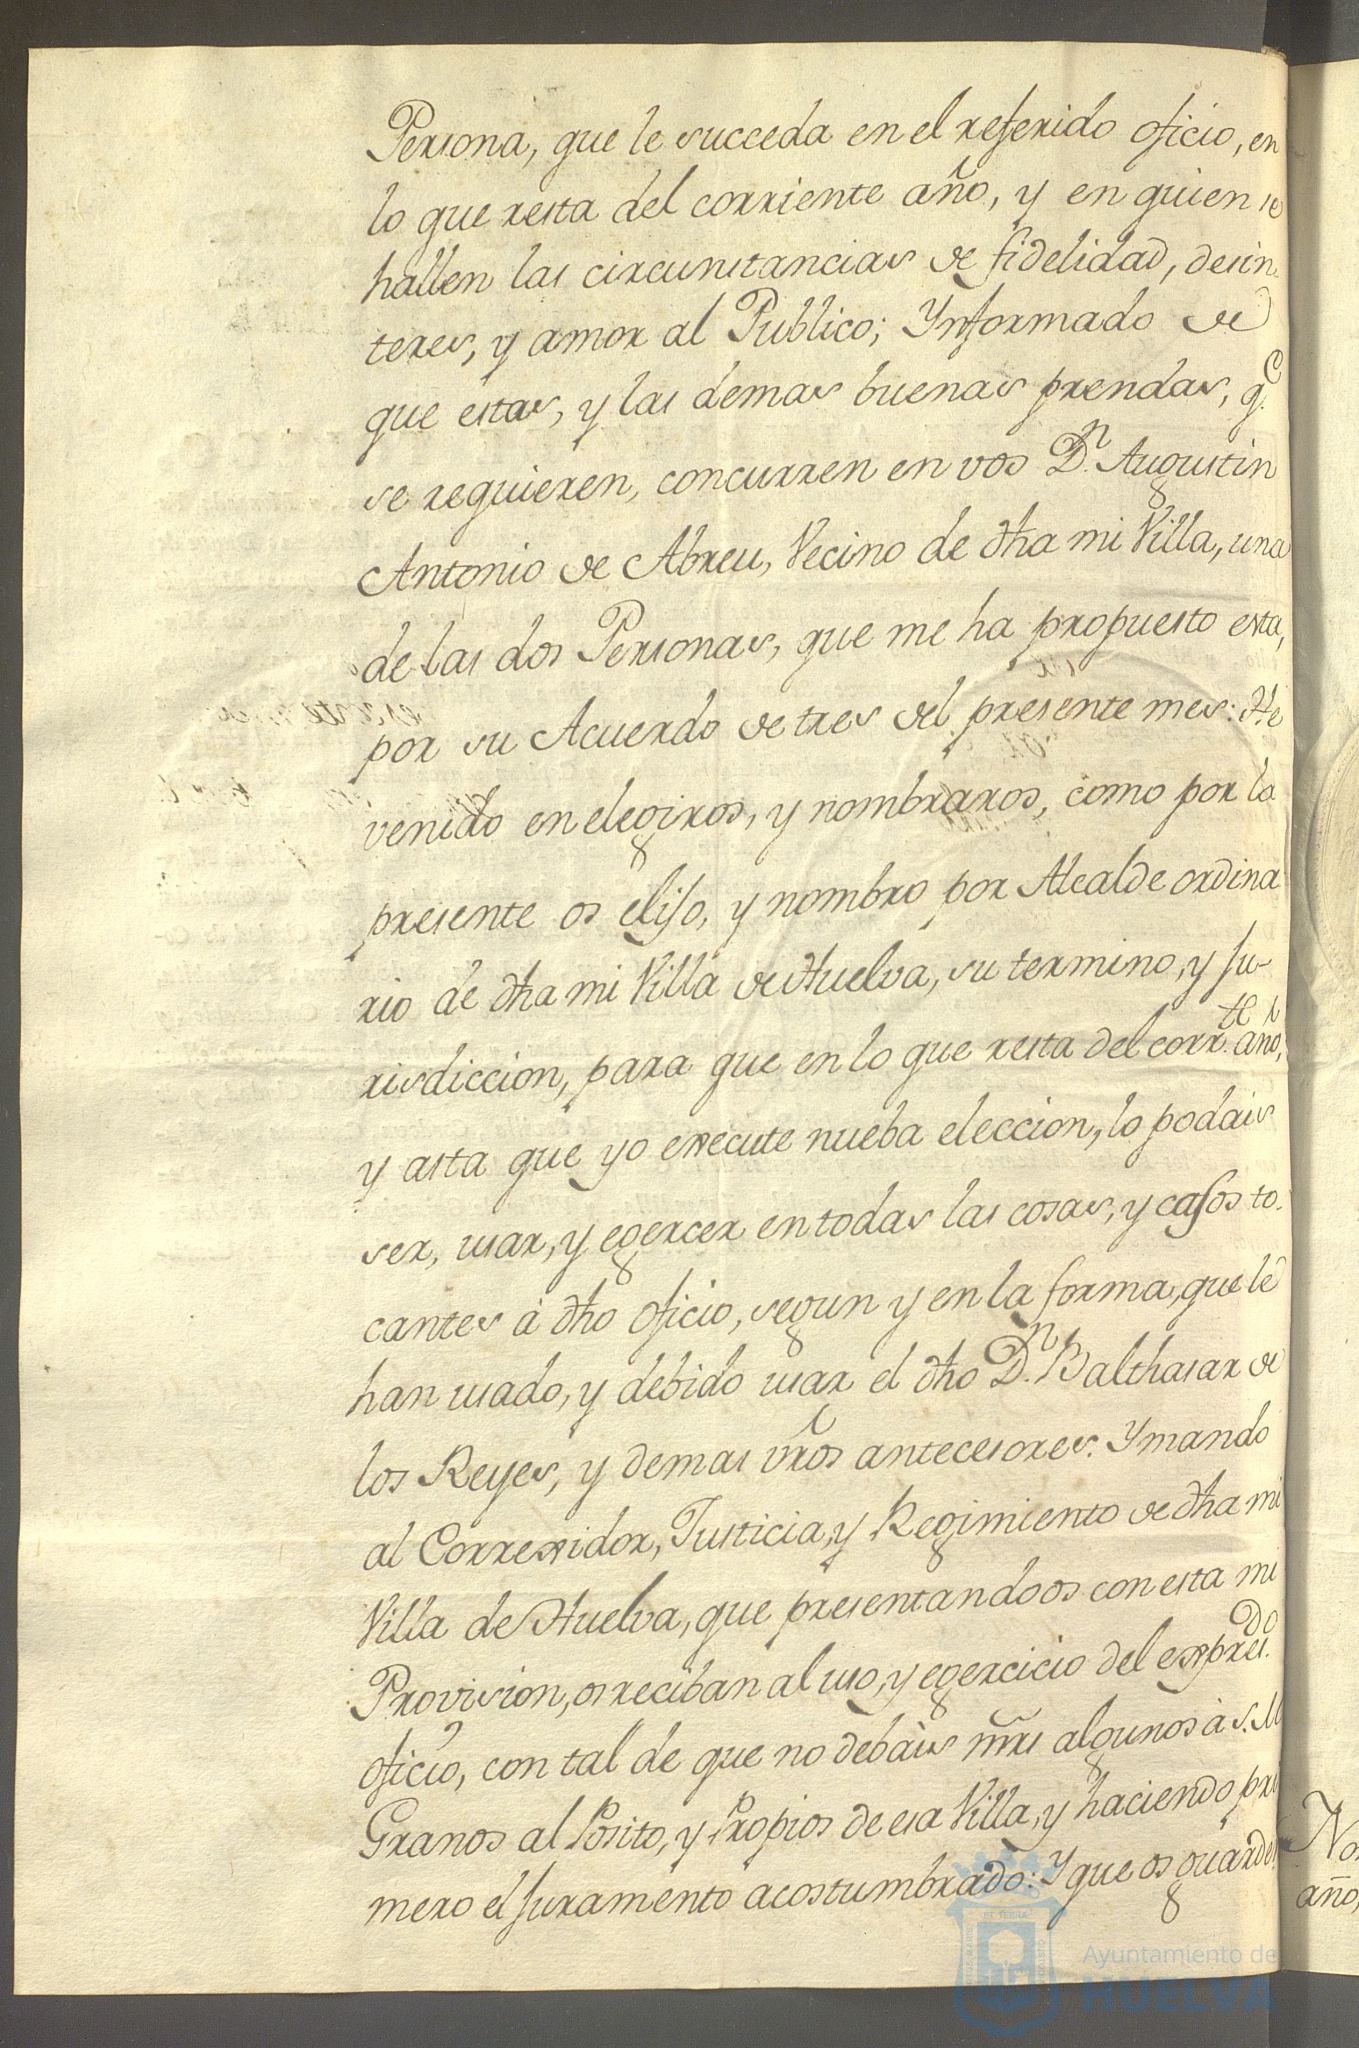 Persona, que le succeda en el referido oficio, en
lo que resta del corriente año, y en quien se
hallen las circunstancias de fidelidad, desin
teres, y amor al Publico; Ynformado de
que estas, y las demas buenas prendas, q.e
se requieren, concurren en vos D.n Augustin
Antonio de Abreu, Vecino de dha mi Villa, una
de las dos Personas, que me ha propuesto esta,
por su Acuerdo de tres del presente mes: He
venido en elegiros, y nombraros, como por la
presente os elijo, y nombro por Alcalde ordina
rio de dha mi Villa de Huelva, su termino, y Ju-
risdiccion, para que en lo que resta del corr.te año,
y asta que yo execute nueba eleccion, lo podais
ser, usar, y egercer en todas las cosas, y casos to-
cantes à dho oficio, segun y en la forma, que le
han usado, y debido usar el dho D.n Balthasar de
los Reyes, y demas vros antecesores. Y mando
al Correxidor, Justicia, y Regimiento de dha mi
Villa de Huelva, que presentandoos con esta mi
Provision, os reciban al uso, y egercicio del expres.do
oficio, con tal de que no debàis mrs algunos à S.M
Granos al Posito, y Propios de esa Villa, y haciendo pri
mero el Juramento acostumbrado: Y que os guarden
No
año,
Ayuntamiento de
HUELVA